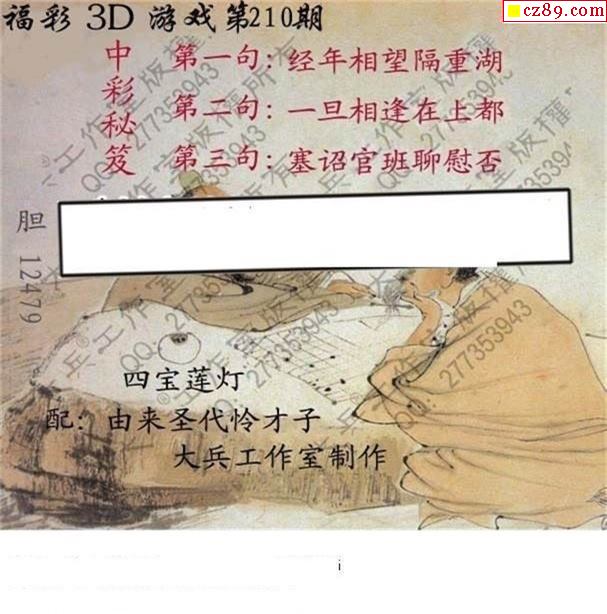 cz89.com
福彩 3D 游戏第210期
中彩秘笈
第一句：经年相望隔重湖
第二句：一旦相逢在上都
第三句：塞诏官班聊慰否
胆 12479
四宝莲灯
配：由来圣代怜才子
大兵工作室制作
大兵®工作室版权所有
QQ:277353943
i